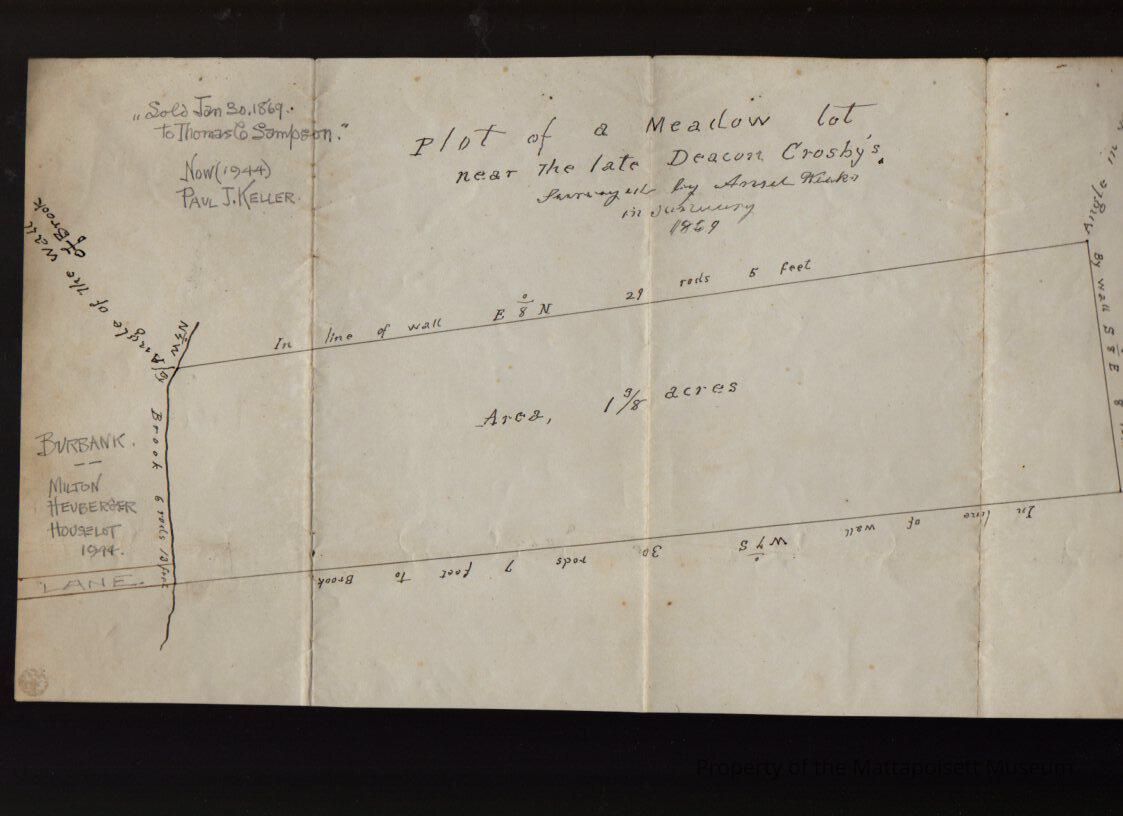 „Sold Jan 30, 1869.
to Thomas C Sampson."
Now (1944)
PAUL J. KELLER.
Plot of a Meadow lot
near The late Deacon Crosby's.
Surveyed by Ansel Weeks
in January
1869
Angle of The Wall
of Brook
N W
In line of wall E 8° N 29 rods 5 feet
Angle in
By wall S 8° E 8
Area, 1 3/8 acres
By Brook 6 rods 13 feet
BURBANK.
MILTON
HEUBERGER
HOUSELOT
1944.
LANE.
In line of wall W 4° S 30 rods 7 feet to Brook
Property of the Mattapoisett Museum